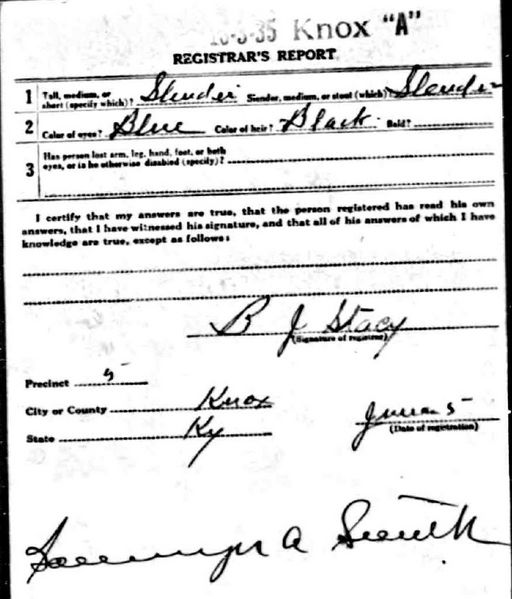 -3-35 Knox "A"
REGISTRAR'S REPORT
1 Tall, medium, or short (specify which)? Slender Slender, medium, or stout (which)? Slender
2 Color of eyes? Blue Color of hair? Black Bald?
3 Has person lost arm, leg, hand, foot, or both
eyes, or is he otherwise disabled (specify)?
I certify that my answers are true, that the person registered has read his own
answers, that I have witnessed his signature, and that all of his answers of which I have
knowledge are true, except as follows:
B J Stacy
(Signature of registrar)
Precinct 5
City or County Knox
State Ky
June 5
(Date of registration)
A Smith